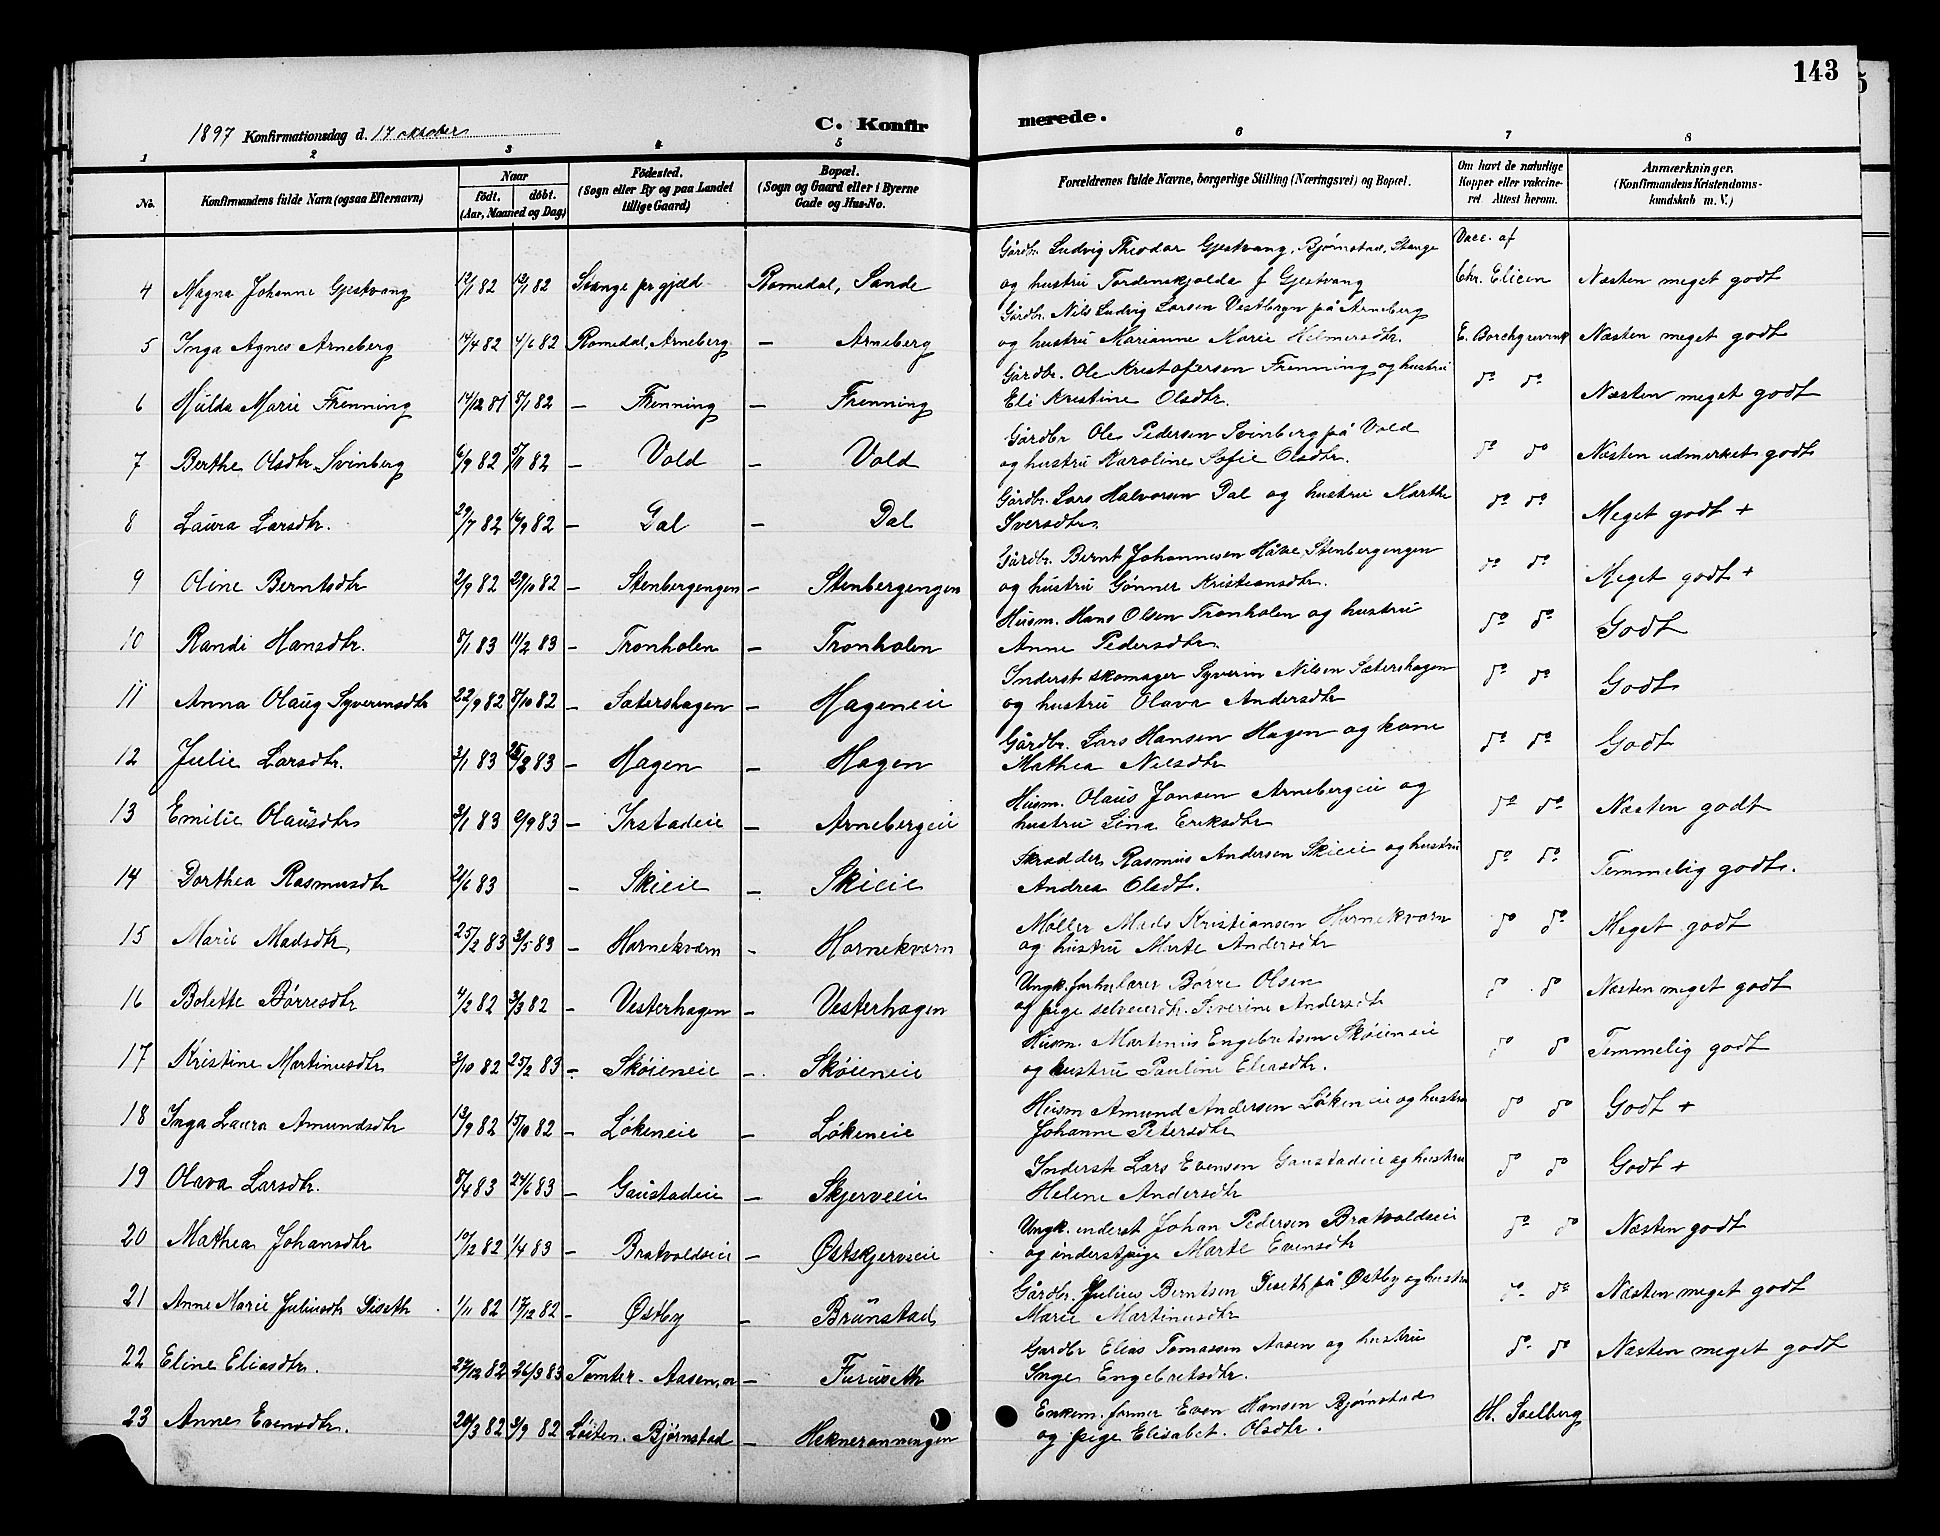 143
1897 Konfirmationsdag d. 17 oktober
C. Konfirmerede.
1 2 3 4 5 6 7 8
No. Konfirmandens fulde Navn (ogsaa Efternavn) Naar født. døbt. (Aar, Maaned og Dag) Fødested. (Sogn eller By og paa Landet tillige Gaard) Bopæl. (Sogn og Gaard eller i Byerne Gade og Hus-No. Forældrenes fulde Navne, borgerlige Stilling (Næringsvei) og Bopæl. Om havt de naturlige Kopper eller vakcineret. Attest herom. Anmærkninger. (Konfirmandens Kristendomskundskab m. V.)
Gårdbr. Ludvig Theodor Gjestvang, Bjørnstad, Stange Vacc. af
4 Magna Johanne Gjestvang 12/1 82 Stange prgjeld Romedal, Sande og hustru Tordenskjolda f Gjestvang Chr. Elieen Næsten meget godt
Gårdbr. Nils Ludvig Larsen Vestbryn på Arneberg
5 Inga Agnes Arneberg 14/4 82 4/6 82 Romedal, Arneberg – Arneberg og hustru Marianne Marie Hilmersdtr. E. Borchgrevink Næsten meget godt
Gårdbr. Ole Kristofersen Frenning og hustru
6 Hulda Marie Frenning 14/12 81 8/1 82 – Frenning – Frenning Eli Kristine Olsdtr. do do Næsten meget godt
Gårdbr Ole Pedersen Svinberg på Vold
7 Berthe Olsdtr. Svinberg 6/9 82 5/11 82 – Vold – Vold og hustru Karoline Sofie Olsdtr. do do Næsten udmerket godt
Gårdbr. Lars Halvorsen Dal og hustru Marthe
8 Laura Larsdtr. 29/7 82 16/9 82 – Dal – Dal Iversdtr. do do Meget godt +
Gårdbr. Bernt Johannesen Håve, Stenbergengen
9 Oline Berntsdtr 2/9 82 29/10 82 – Stenbergengen – Stenbergengen og hustru Gønner Kristiansdtr. do do Meget godt +
Husm. Hans Olsen Tronholen og hustru
10 Randi Hansdtr. 8/1 83 11/2 83 – Tronholen – Tronholen Anne Pedersdtr. do do Godt
Inderst skomager Syverin Nilsen Sætershagen
11 Anna Olaug Syverinsdtr 22/9 82 8/10 82 – Sætershagen – Hageneie og hustru Olava Andersdtr do do Godt
Gårdbr. Lars Hansen Hagen og kone
12 Julie Larsdtr. 3/1 83 25/2 83 – Hagen – Hagen Mathea Nilsdtr do do Godt
Husm. Olaus Jonsen Arnebergeie og
13 Emilie Olausdtr 3/1 83 9/9 83 – Irstadeie – Arnebergeie hustru Lina Eriksdtr do do Næsten godt
Skrædder Rasmus Andersen Skieie og hustru
14 Dorthea Rasmusdtr 2/6 83 – Skieie – Skieie Andrea Olsdtr. do do Temmelig godt.
Møller Mads Kristiansen Hornekværn
15 Marie Madsdtr 25/2 83 3/5 83 – Hornekværn – Hornekværn og hustru Marte Andersdtr do do Meget godt
Ungk. Børre Olsen
16 Bolette Børresdtr 4/2 82 3/3 82 – Vesterhagen – Vesterhagen og pige selveierdtr. Severine Andersdtr do do Næsten meget godt
Husm. Martinius Engebretsen Skøieneie
17 Kristine Martinusdtr 3/10 82 25/2 83 – Skøieneie – Skøieneie og hustru Pauline Eliasdtr. do do Temmelig godt
Husm Amund Andersen Løkeneie og hustru
18 Inga Laura Amundsdtr 13/9 82 15/10 82 – Løkeneie – Løkeneie Johanne Petersdtr do do Godt +
Inderst Lars Evensen Gaustadeie og hustru
19 Olava Larsdtr. 8/4 83 24/6 83 – Gaustadeie – Skjerveeie Helene Andersdtr do do Godt +
Ungk. inderst Johan Pedersen Bratvoldseie
20 Mathea Johansdtr 10/12 82 1/4 83 – Bratvoldseie – Østskjerveeie og inderstpige Marte Evensdtr do do Næsten godt
Gårdbr. Julius Berntsen Diseth på Østby og hustru
21 Anne Marie Juliusdtr Diseth 1/11 82 17/12 82 – Østby – Brunstad Marie Martinusdtr do do Næsten meget godt
Gardbr Elias Tomassen Aasen og hustru
22 Eline Eliasdtr. 27/12 82 26/3 83 Tomter. Aasen, – Furuseth Inge Engebretsdtr. do do Næsten meget godt
Enkem. former Even Hansen Bjørnstad
23 Annes Evensdtr. 20/3 82 3/9 82 Løiten. Bjørnstad – Heknerønningen og pige Elisabet. Olsdtr. H. Soelberg